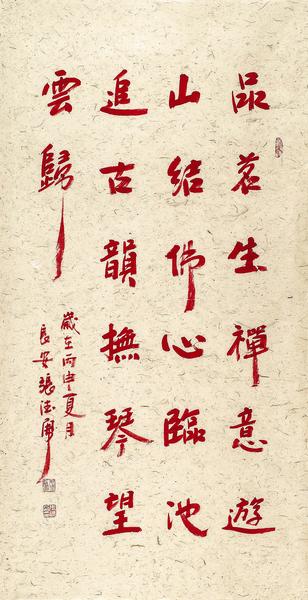 品茗生禪意遊
山結佛心臨池
追古韻撫琴望
雲歸
歲在丙申夏月
長安張德